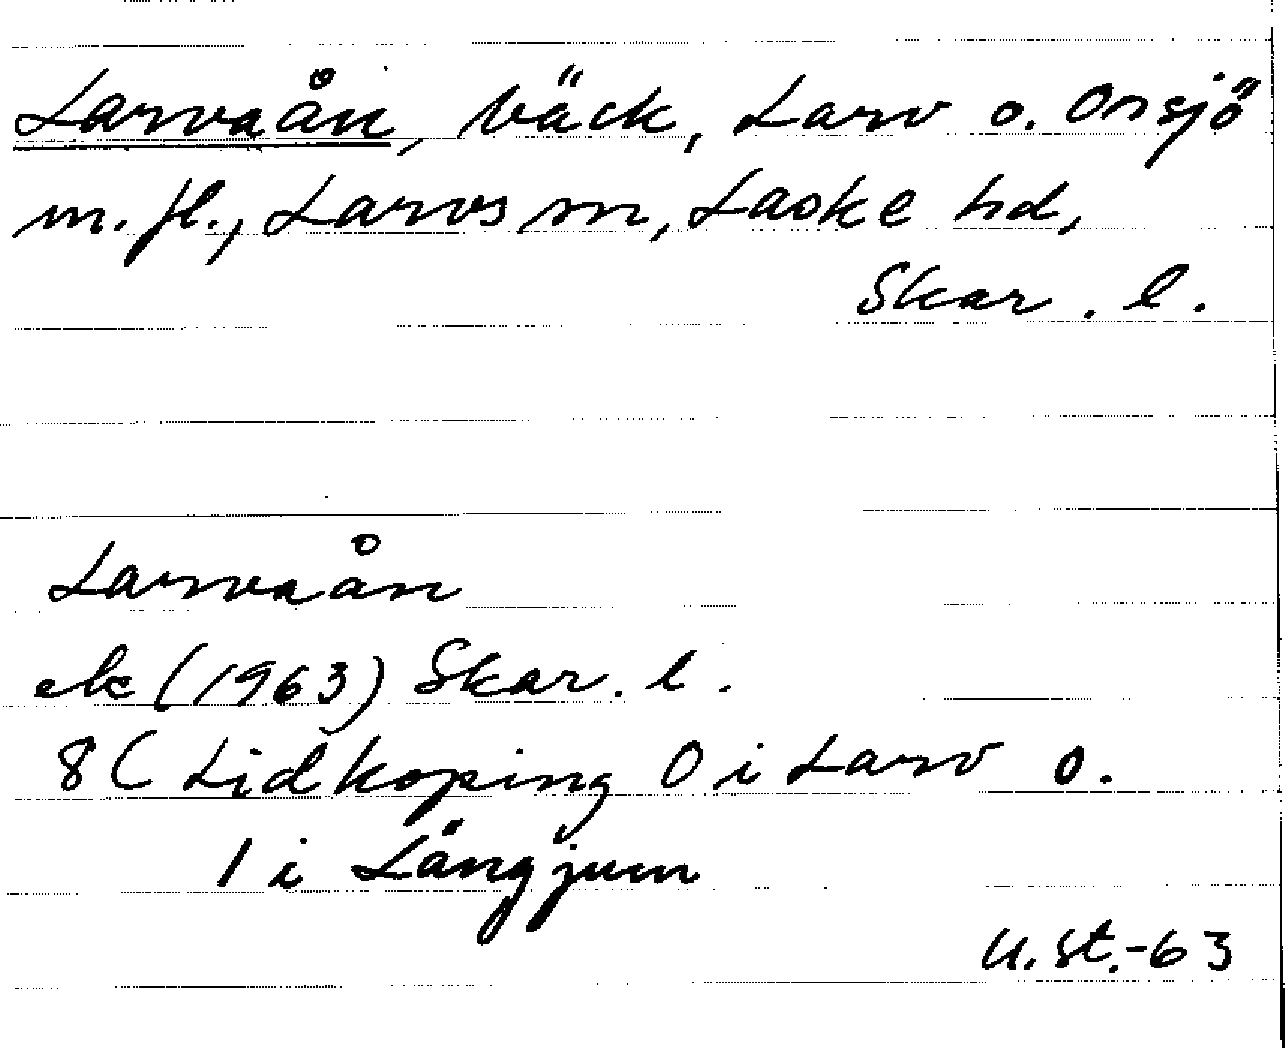 Larvaån, bäck, Larv o. Önsjö
m.fl., Larvs sn, Laske hd,
Skar. l.
Larvaån
ek (1963) Skar. l.
8C Lidköping 0 i Larv o.
1 i Längjum
U.St.-63